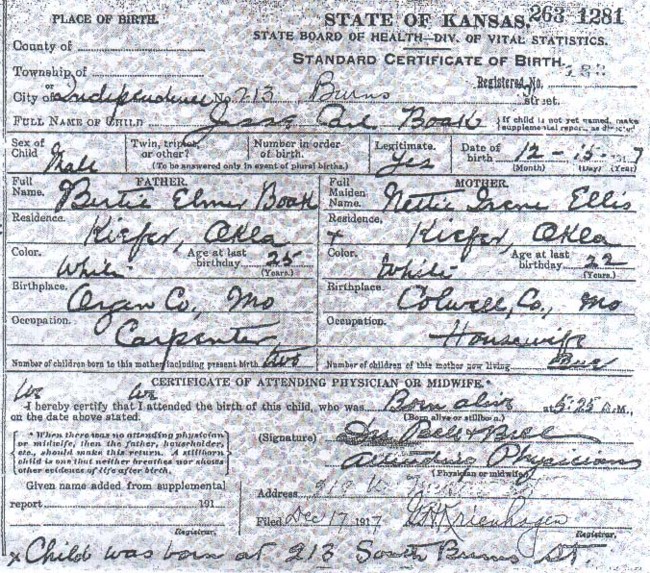 PLACE OF BIRTH. STATE OF KANSAS. 263 1281
STATE BOARD OF HEALTH—DIV. OF VITAL STATISTICS.
County of STANDARD CERTIFICATE OF BIRTH.
Township of Registered No.
or
City of Independence No. 213 Burns street.
FULL NAME OF CHILD Jesse Boak { If child is not yet named, make supplemental report, as directed }
Sex of Child Male Twin, triplet, or other? Number in order of birth. Legitimate. Yes Date of birth 12 - 15 -
(To be answered only in event of plural births.) (Month) (Day) (Year)
Full Name. FATHER. Bertie Elmer Boak
Full Maiden Name. MOTHER. Nettie Irene Ellis
Residence. Kiefer, Okla
Residence. x Kiefer, Okla
Color. White Age at last birthday 25 (Years.)
Color. White Age at last birthday 22 (Years.)
Birthplace. Co, Mo
Birthplace. Colwell, Co, Mo
Occupation. Carpenter
Occupation. Housewife
Number of children born to this mother, including present birth two
Number of children of this mother now living
CERTIFICATE OF ATTENDING PHYSICIAN OR MIDWIFE.*
We we
I hereby certify that I attended the birth of this child, who was Born alive at 5:25 M.,
on the date above stated. (Born alive or stillborn.)
* When there was no attending physician
or midwife, then the father, householder,
etc., should make this return. A stillborn
child is one that neither breathes nor shows
other evidence of life after birth.
(Signature) Bell
Attending Physicians
(Physician or midwife)
Given name added from supplemental
report 191
Address
Registrar.
Filed Dec 17 1917 Krienhagen
Registrar.
x Child was born at 213 South Burns St.